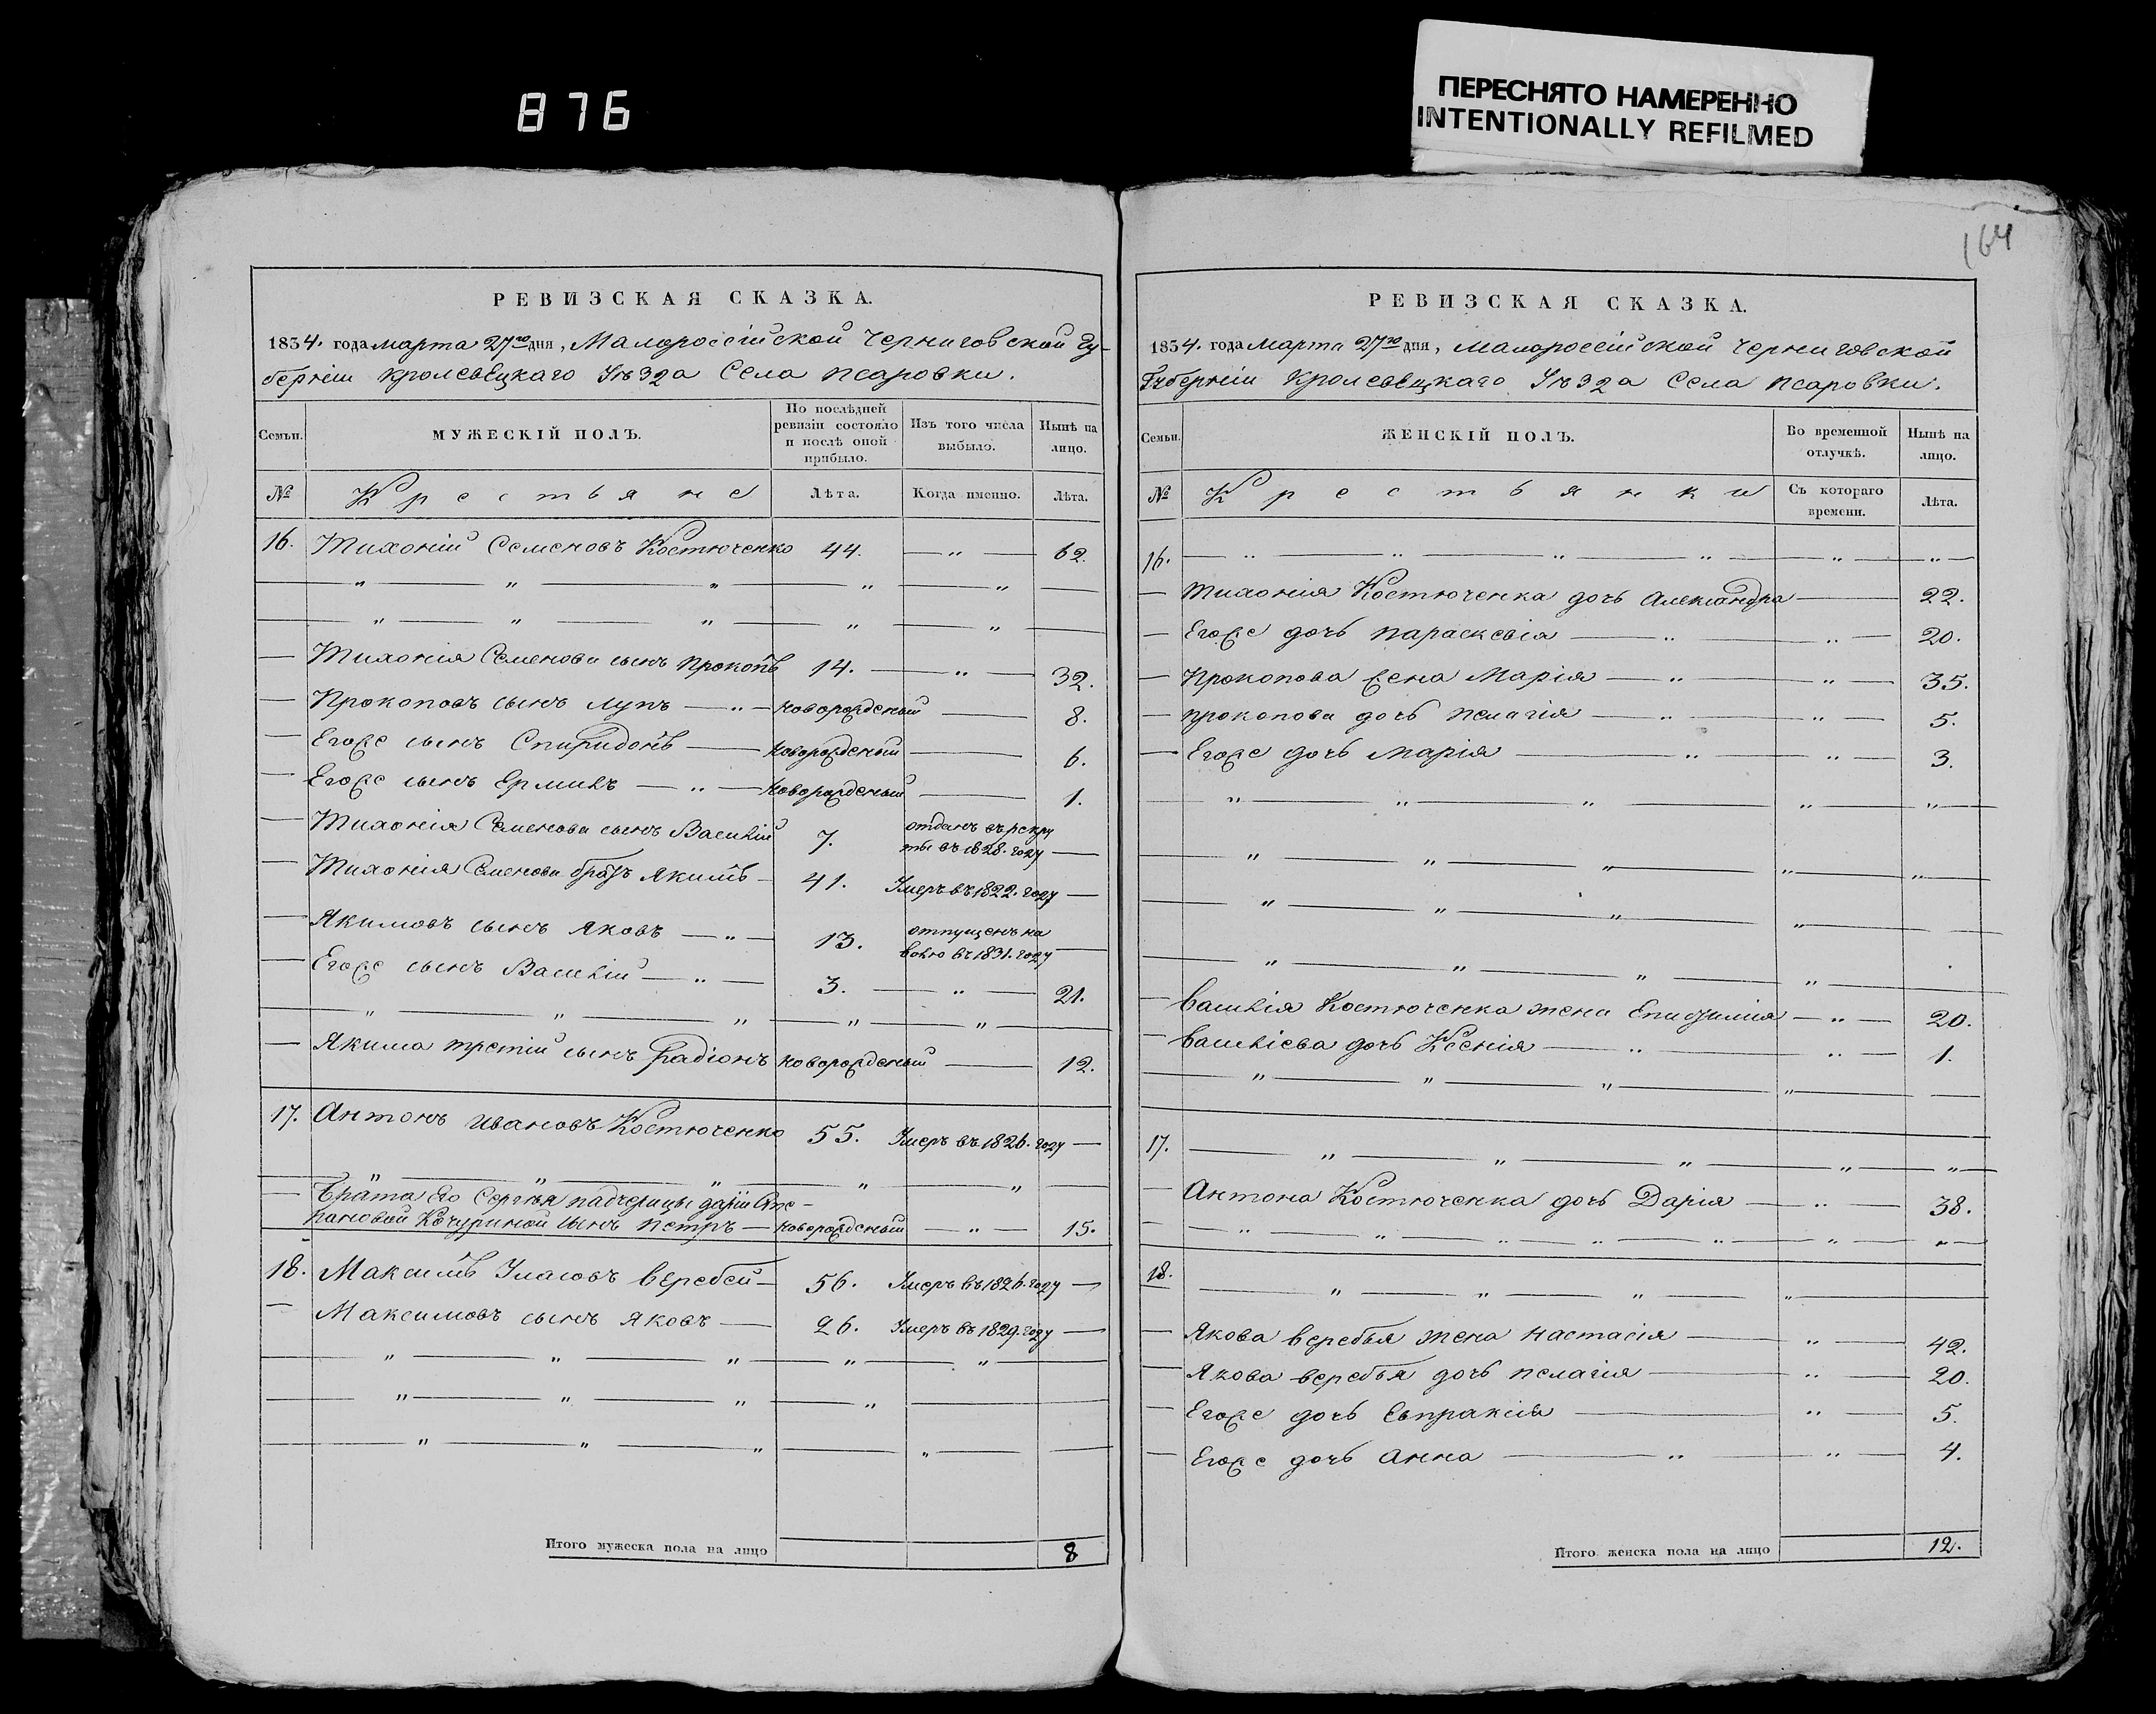 876
ПЕРЕСНЯТО НАМЕРЕННО
INTENTIONALLY REFILMED
164
РЕВИЗСКАЯ СКАЗКА.
1834. года марта 27го дня, Малороссійской Черниговской гу-
берніи Кролевецкаго Уѣзда Села Псаровки.
Семьи.
МУЖЕСКІЙ ПОЛЪ.
По послѣдней ревизіи состояло и послѣ оной прибыло.
Изъ того числа выбыло.
Нынѣ на лицо.
№ Крестьяне Лѣта. Когда именно. Лѣта.
16. Тихоній Семеновъ Костюченко 44. — „ — 62.
— Тихонія Семенова сынъ Прокопъ 14. — „ — 32.
— Прокоповъ сынъ Лупъ — „ — новорожденый — 8.
— Егоже сынъ Спиридонъ — новорожденый — 6.
— Егоже сынъ Ермилъ — „ — новорожденый — 1.
— Тихонія Семенова сынъ Василій 7. отданъ въ рекру
ты въ 1828. году —
— Тихонія Семенова братъ Якимъ — 41. Умеръ въ 1822. году —
— Якимовъ сынъ Яковъ — „ — 13. отпущенъ на
волю въ 1831. году —
— Егоже сынъ Василій — „ — 3. — „ — 21.
— Якима третій сынъ Радіонъ новорожденый — 12.
17. Антонъ Ивановъ Костюченко 55. Умеръ въ 1826. году —
— Брата Его Сергѣя падчерицы Даріи Сте-
пановой Кочуриной сынъ Петръ — новорожденый — „ — 15.
18. Максимъ Уласовъ Веребей — 56. Умеръ въ 1826. году —
— Максимовъ сынъ Яковъ — 26. Умеръ въ 1829. году —
Итого мужеска пола на лицо 8
РЕВИЗСКАЯ СКАЗКА.
1834. года Марта 27го дня, Малороссійской Черниговской
Губерніи Кролевецкаго Уѣзда Села Псаровки.
Семьи.
ЖЕНСКІЙ ПОЛЪ.
Во временной отлучкѣ.
Нынѣ на лицо.
№ Крестьянки Съ котораго времени. Лѣта.
16. — „ — „ — „ — „ — „ — „ —
— Тихонія Костюченка дочь Александра — 22.
— Егоже дочь Параскевія — „ — „ — 20.
— Прокопова жена Марія — „ — „ — 35.
— Прокопова дочь Пелагія — „ — „ — 5.
— Егоже дочь Марія — „ — „ — 3.
— Василія Костюченка жена Епифимія — „ — 20.
— Василіева дочь Ксенія — „ — „ — 1.
17. — „ — „ — „ — „ — „ —
— Антона Костюченка дочь Дарія — „ — 38.
18. — „ — „ — „ — „ —
— Якова Веребья жена Настасія — „ — 42.
— Якова Веребья дочь Пелагія — „ — 20.
— Егоже дочь Евпраксія — „ — 5.
— Егоже дочь Анна — „ — „ — 4.
Итого женска пола на лицо 12.